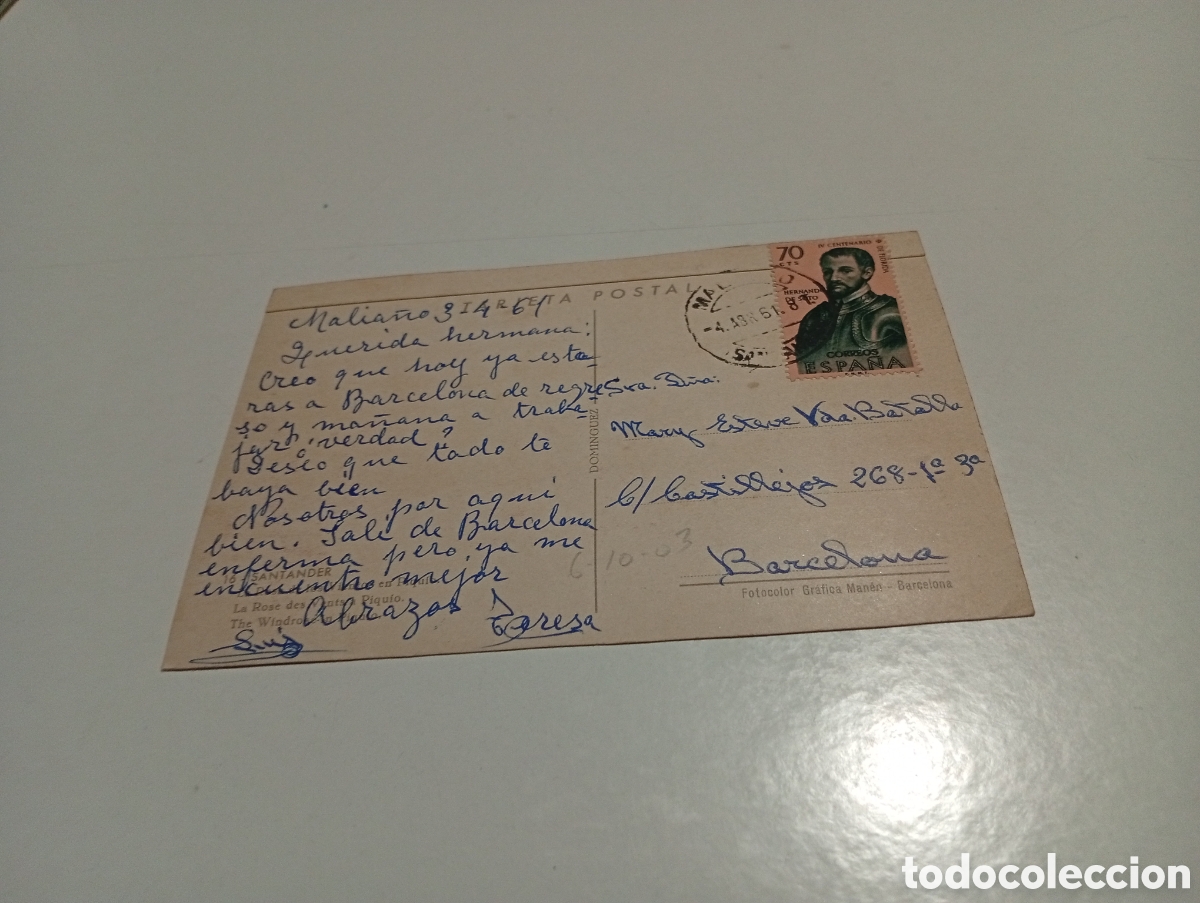 TARJETA POSTAL
Maliaño 3 I 4 61
Querida hermana:
Creo que hoy ya esta-
ras a Barcelona de regre
so y mañana a traba-
jar ¿verdad?
Deseo que todo te
baya bien
Nosotros por aqui
bien. Sali de Barcelona
enferma pero ya me
encuentro mejor
Abrazos
Teresa
Luis
SANTANDER
La Rose des Vents à Piquio.
The Windrose
DOMINGUEZ
70
CTS
IV CENTENARIO
DE FLORIDA
HERNANDO
DE SOTO
CORREOS
ESPAÑA
-4.ABR.61.8
Sra. Dña:
Mary Esteve Vda. Batalla
C/ Castillejos 268-1ª 3ª
Barcelona
6-10-03
Fotocolor Gráfica Manén - Barcelona
todocoleccion